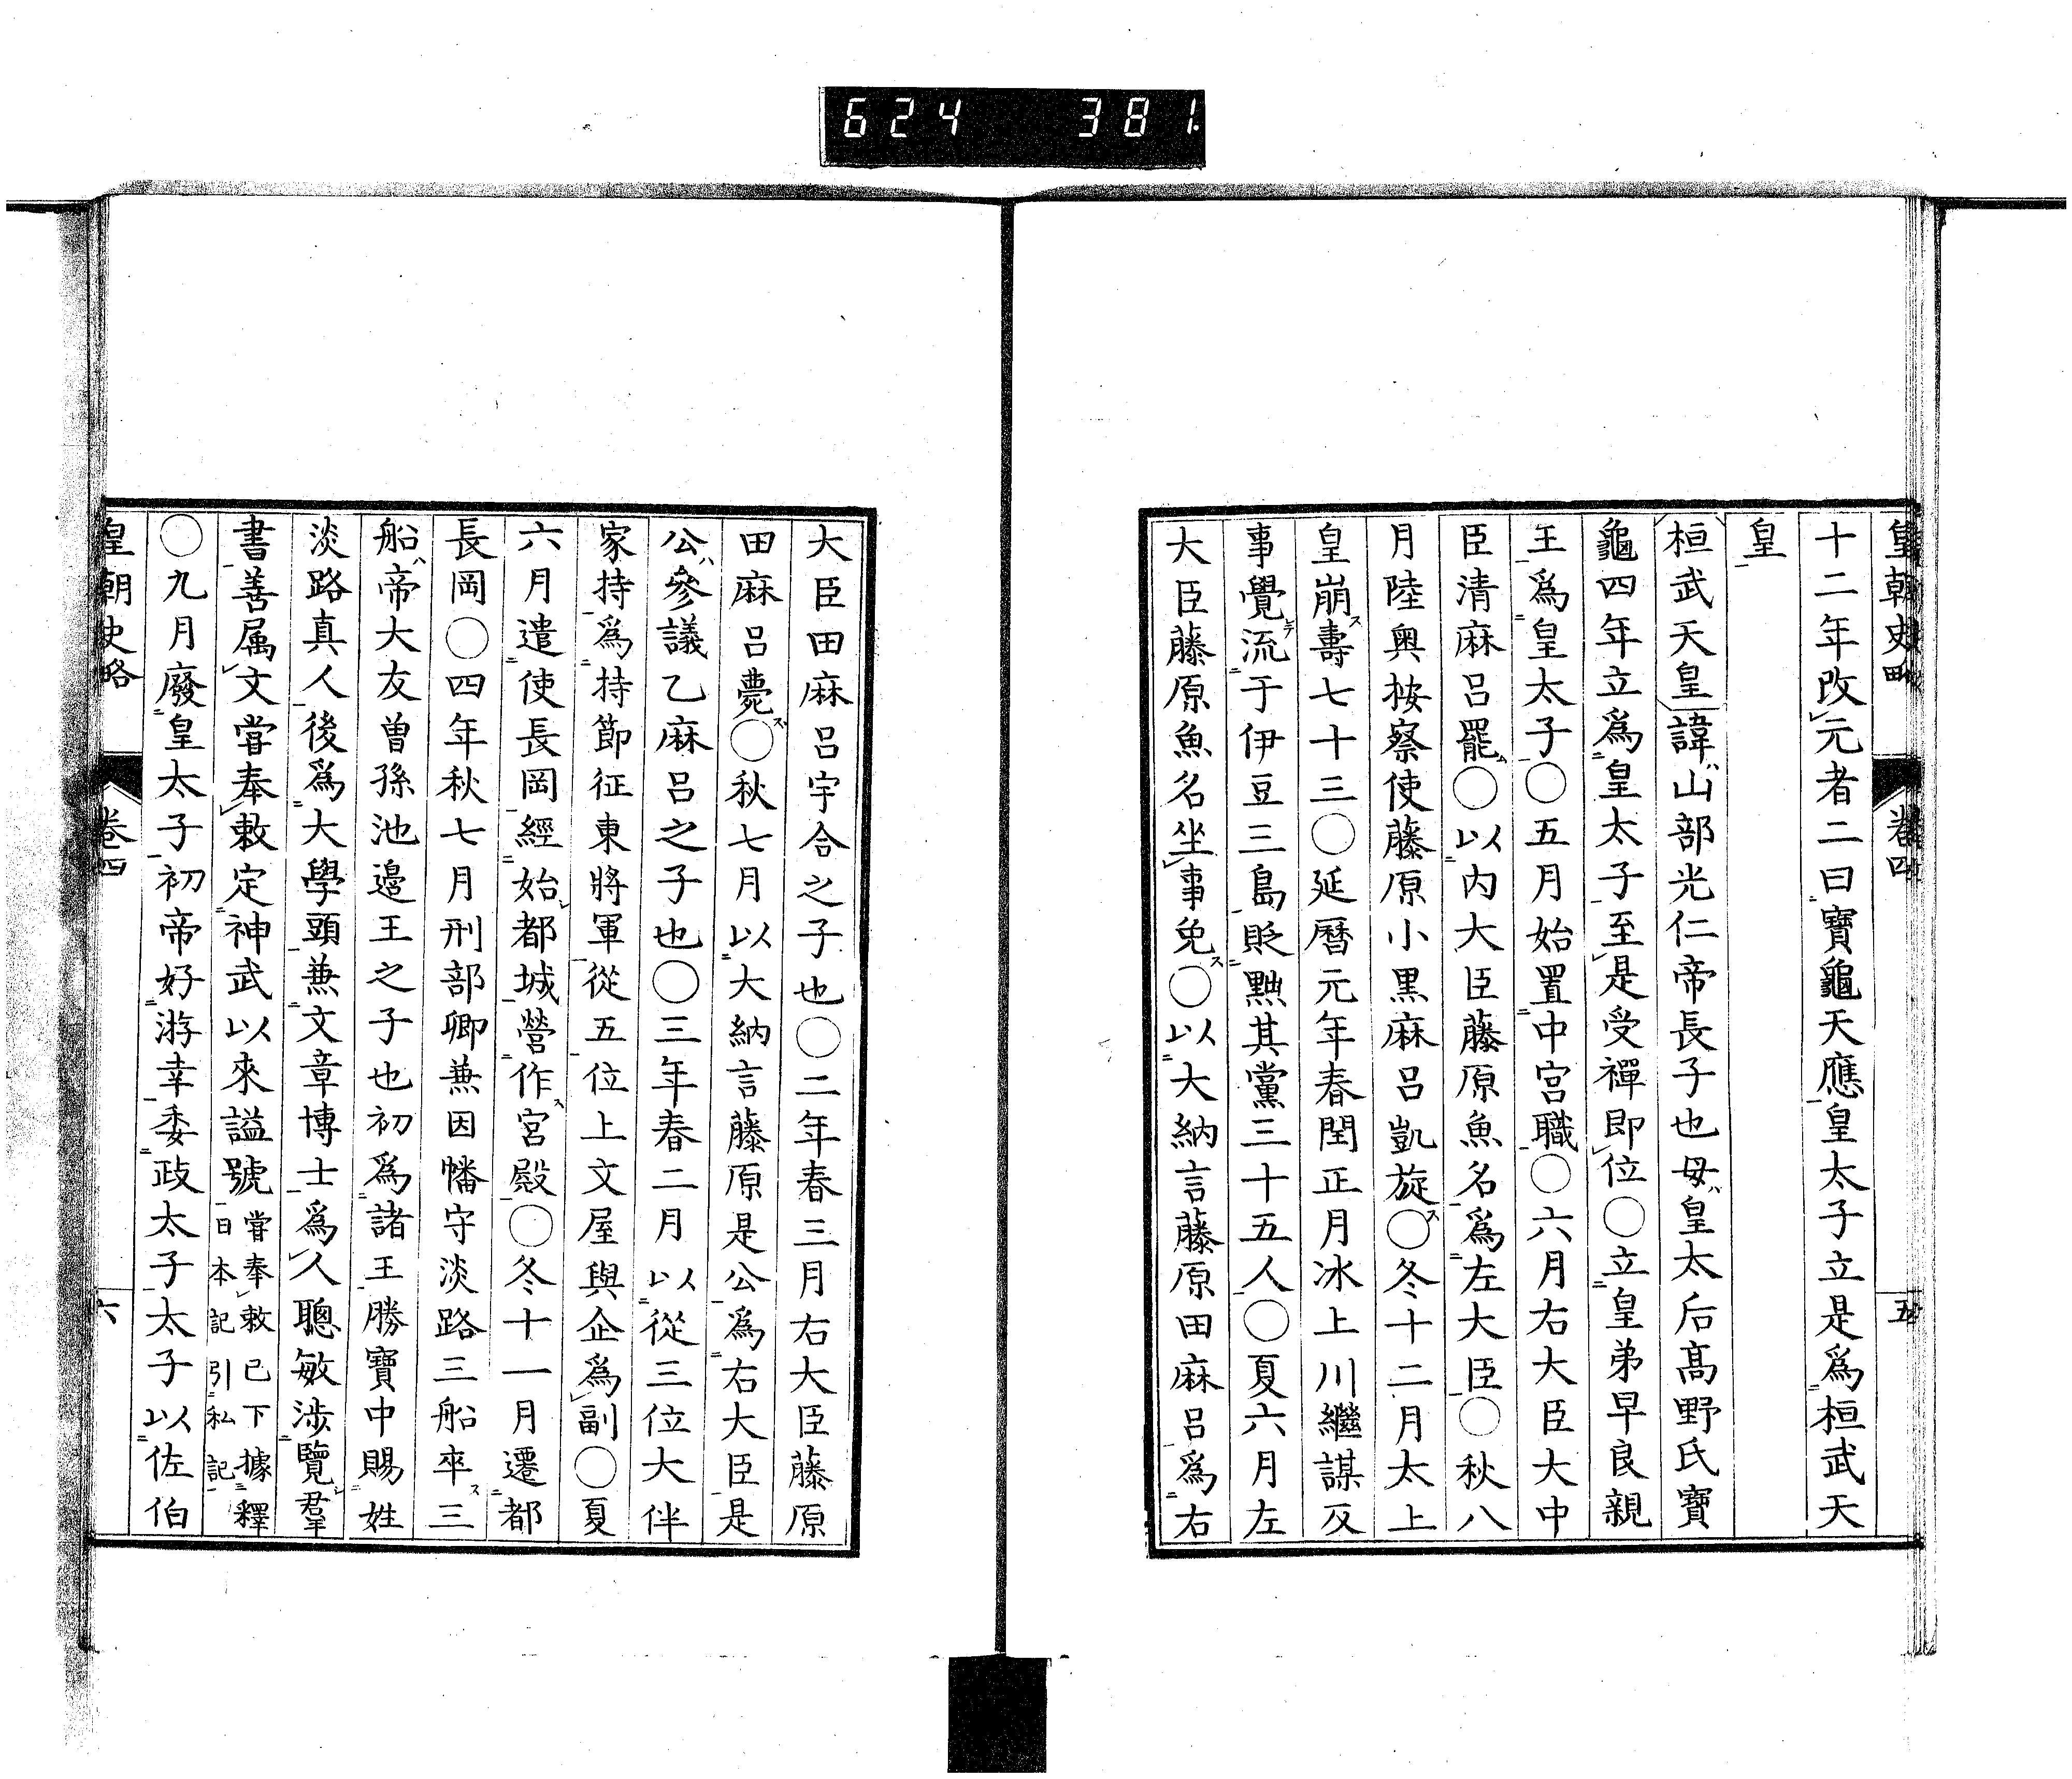 624 381
皇朝史略 卷四 五
十二年改元者二曰寶龜天應皇太子立是爲桓武天
皇
桓武天皇諱山部光仁帝長子也母皇太后高野氏寶
龜四年立爲皇太子至是受禪即位〇立皇弟早良親
王爲皇太子〇五月始置中宮職〇六月右大臣大中
臣清麻呂罷〇以内大臣藤原魚名爲左大臣〇秋八
月陸奥按察使藤原小黒麻呂凱旋〇冬十二月太上
皇崩壽七十三〇延曆元年春閏正月冰上川繼謀反
事覺流于伊豆三島貶黜其黨三十五人〇夏六月左
大臣藤原魚名坐事免〇以大納言藤原田麻呂爲右
大臣田麻呂宇合之子也〇二年春三月右大臣藤原
田麻呂薨〇秋七月以大納言藤原是公爲右大臣是
公參議乙麻呂之子也〇三年春二月以從三位大伴
家持爲持節征東將軍從五位上文屋與企爲副〇夏
六月遣使長岡經始都城營作宮殿〇冬十一月遷都
長岡〇四年秋七月刑部卿兼因幡守淡路三船卒三
船帝大友曾孫池邊王之子也初爲諸王勝寶中賜姓
淡路真人後爲大學頭兼文章博士爲人聰敏涉覽羣
書善属文嘗奉敕定神武以來謚號嘗奉敕已下據釋
日本記引私記
〇九月廢皇太子初帝好游幸委政太子太子以佐伯
皇朝史略 卷四 六